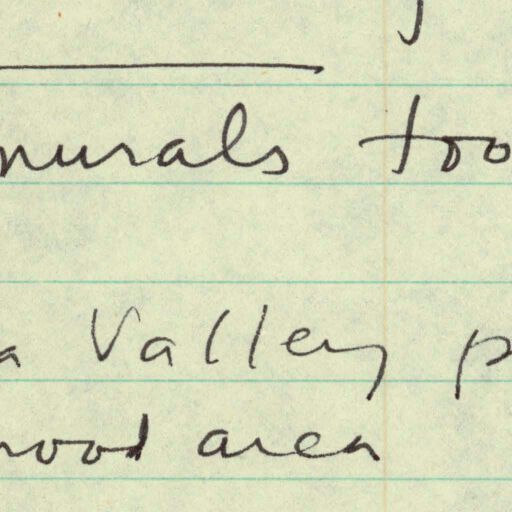 murals too
a Valley p
wood area